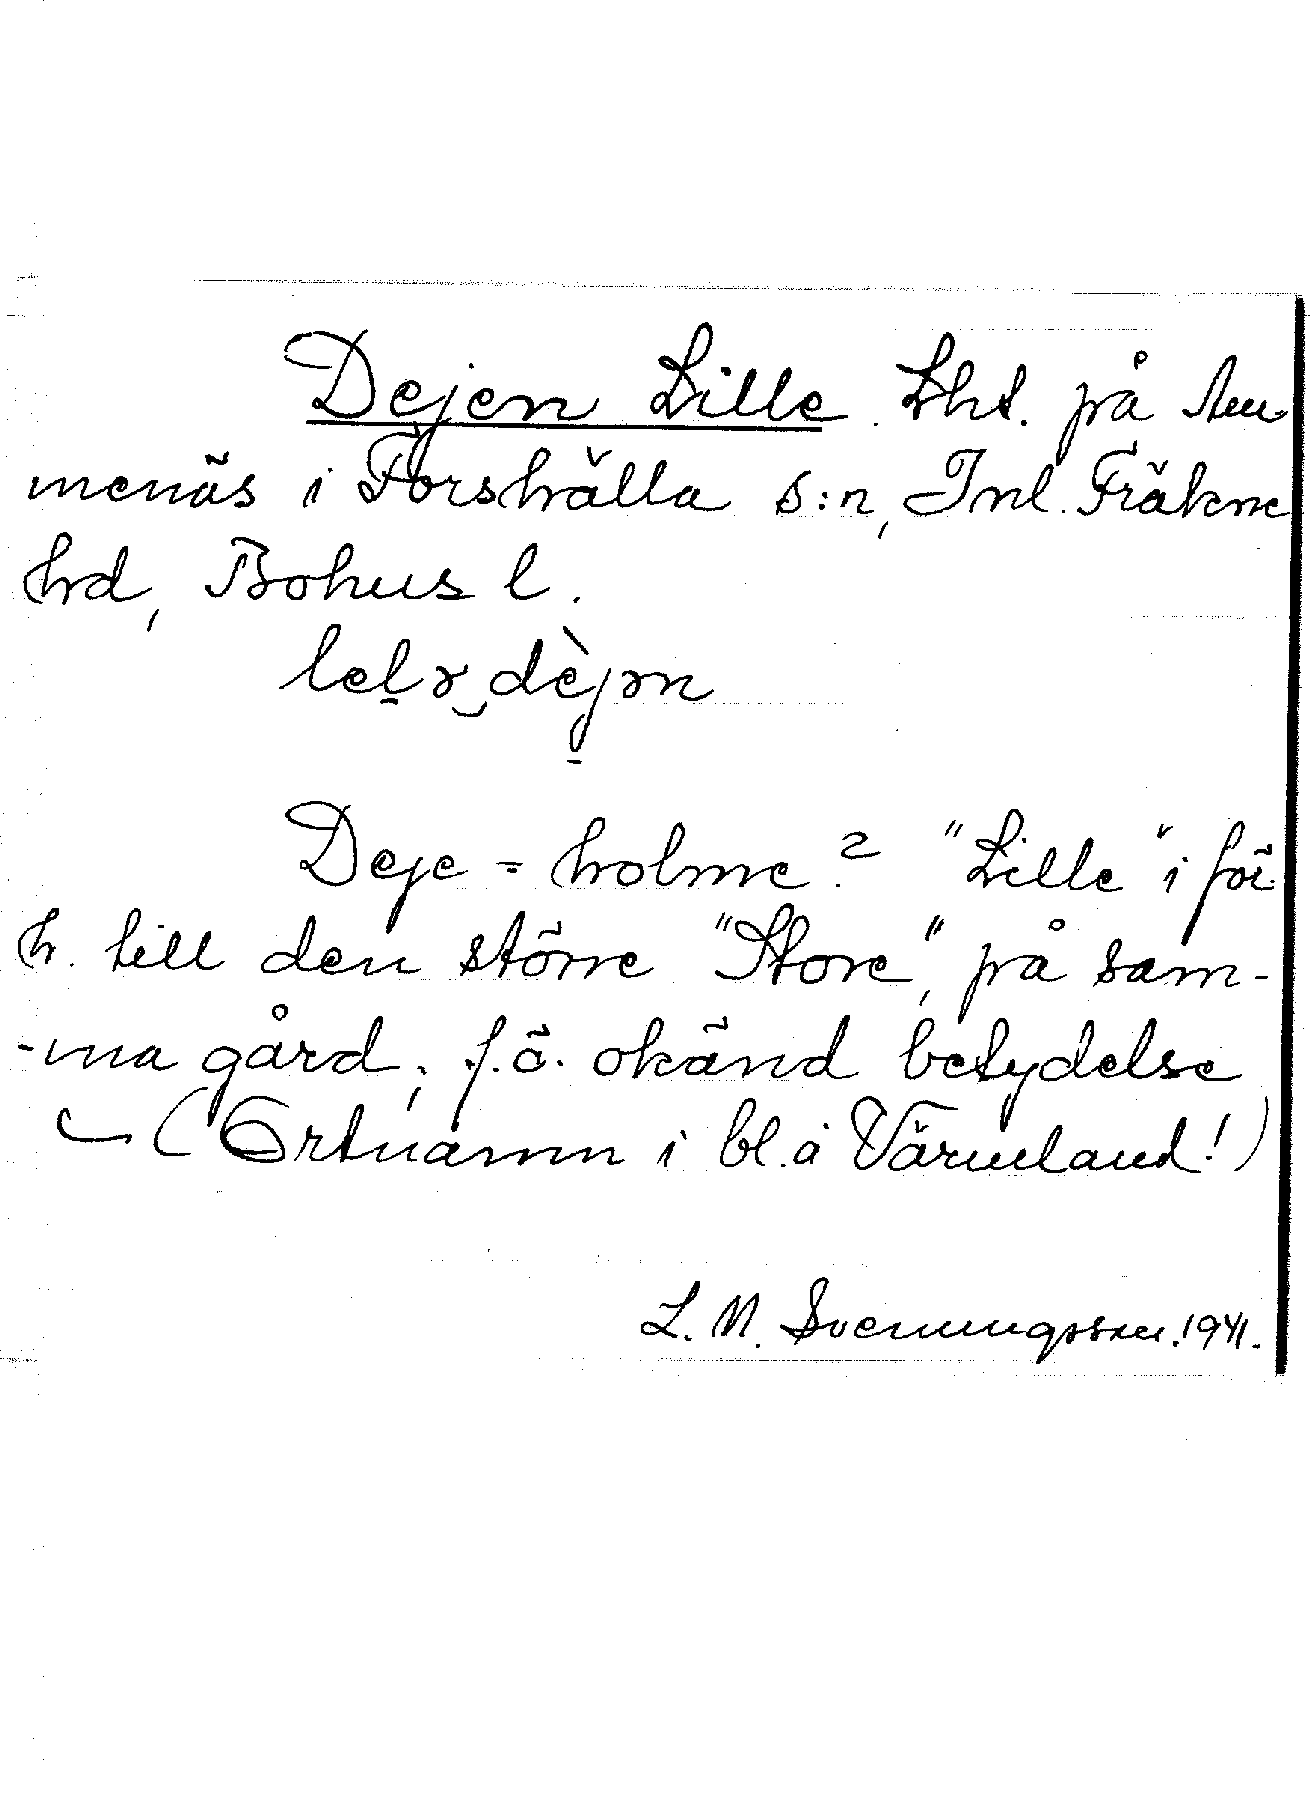 Dejen Lille. Lht. på Am
menäs i Forshälla s:n, Inl. Fräkne
hrd, Bohus l.
lelə dèjən
Deje = holme? "Lille" i för
h. till den större "Store", på sam-
-ma gård; f.ö. okänd betydelse
(Ortnamn i bl.a Värmland!)
L. M. Svenungsson. 1941.